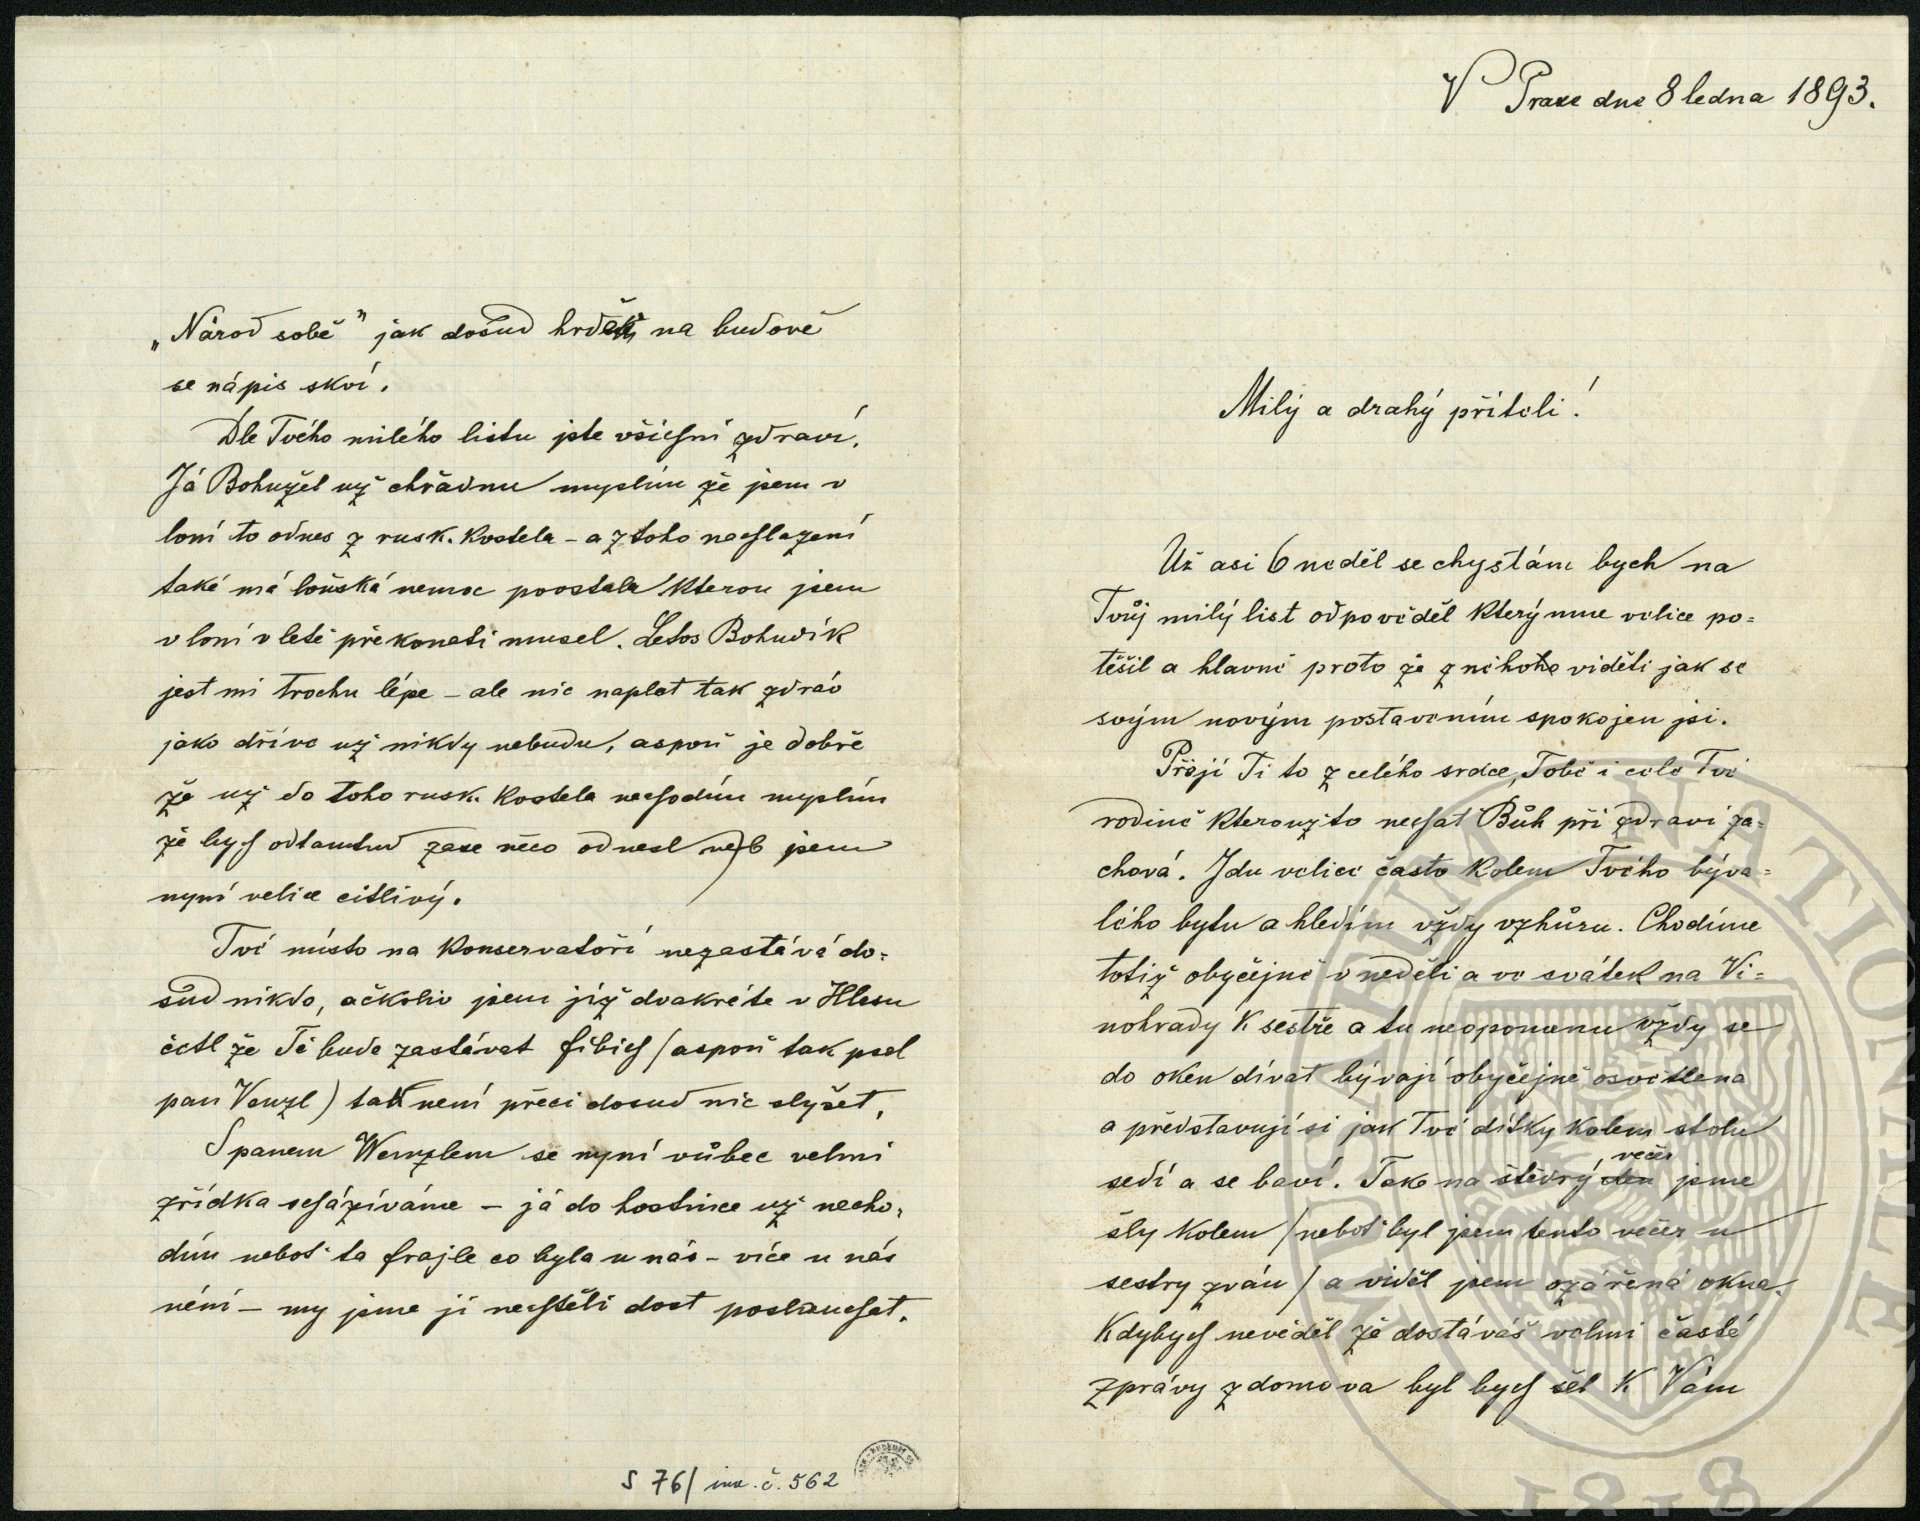 V Praze dne 8 ledna 1893.
Milý a drahý příteli!
Už asi 6 neděl se chystám bych na
Tvůj milý list odpověděl který mne velice po=
těšil a hlavně proto že z něhoho viděti jak se
svým novým postavením spokojen jsi.
Přeji Ti to z celého srdce, Tobě i celé Tvé
rodině kteroužto nechať Bůh při zdraví za=
chová. Jdu velice často kolem Tvého býva=
lého bytu a hledím vždy vzhůru. Chodíme
totiž obyčejně v neděli a ve svátek na Vi=
nohrady k sestře a tu neopomenu vždy se
do oken dívat bývají obyčejně osvětlena
a představuji si jak Tvé dítky kolem stolu
sedí a se baví. Také na štědrý den večer jsme
šly kolem /neboť byl jsem tento večer u
sestry zván/ a viděl jsem ozářená okna.
Kdybych nevěděl že dostáváš velmi časté
zprávy z domova byl bych šel k Vám
„Národ sobě" jak dosud na budově
se nápis skví.
Dle Tvého milého listu jste všichni zdraví.
Já Bohužel už chřadnu myslím že jsem v
loni to odnes z rusk. kostela – a z toho nachlazení
také má loňská nemoc povstala kterou jsem
v loni v letě překonati musel. Letos Bohudík
jest mi trochu lépe – ale nic naplat tak zdráv
jako dříve už nikdy nebudu, aspoň je dobře
že už do toho rusk. kostela nechodím myslím
že bych odtamtud zase něco odnesl neb jsem
nyní velice citlivý.
Tvé místo na konservatoři nezastává do=
sud nikdo, ačkoliv jsem již dvakráte v Hlasu
četl že Tě bude zastávat Fibich /aspoň tak psal
pan Venzl) tak není přeci dosud nic slyšet.
S panem Wenzlem se nyní vůbec velmi
zřídka scházíváme – já do hostince už necho=
dím neboť ta frajle co byla u nás – více u nás
není – my jsme jí nechtěli dost poslouchat.
S 76/ inv. č. 562
MUSEUM NATIONALE
1818